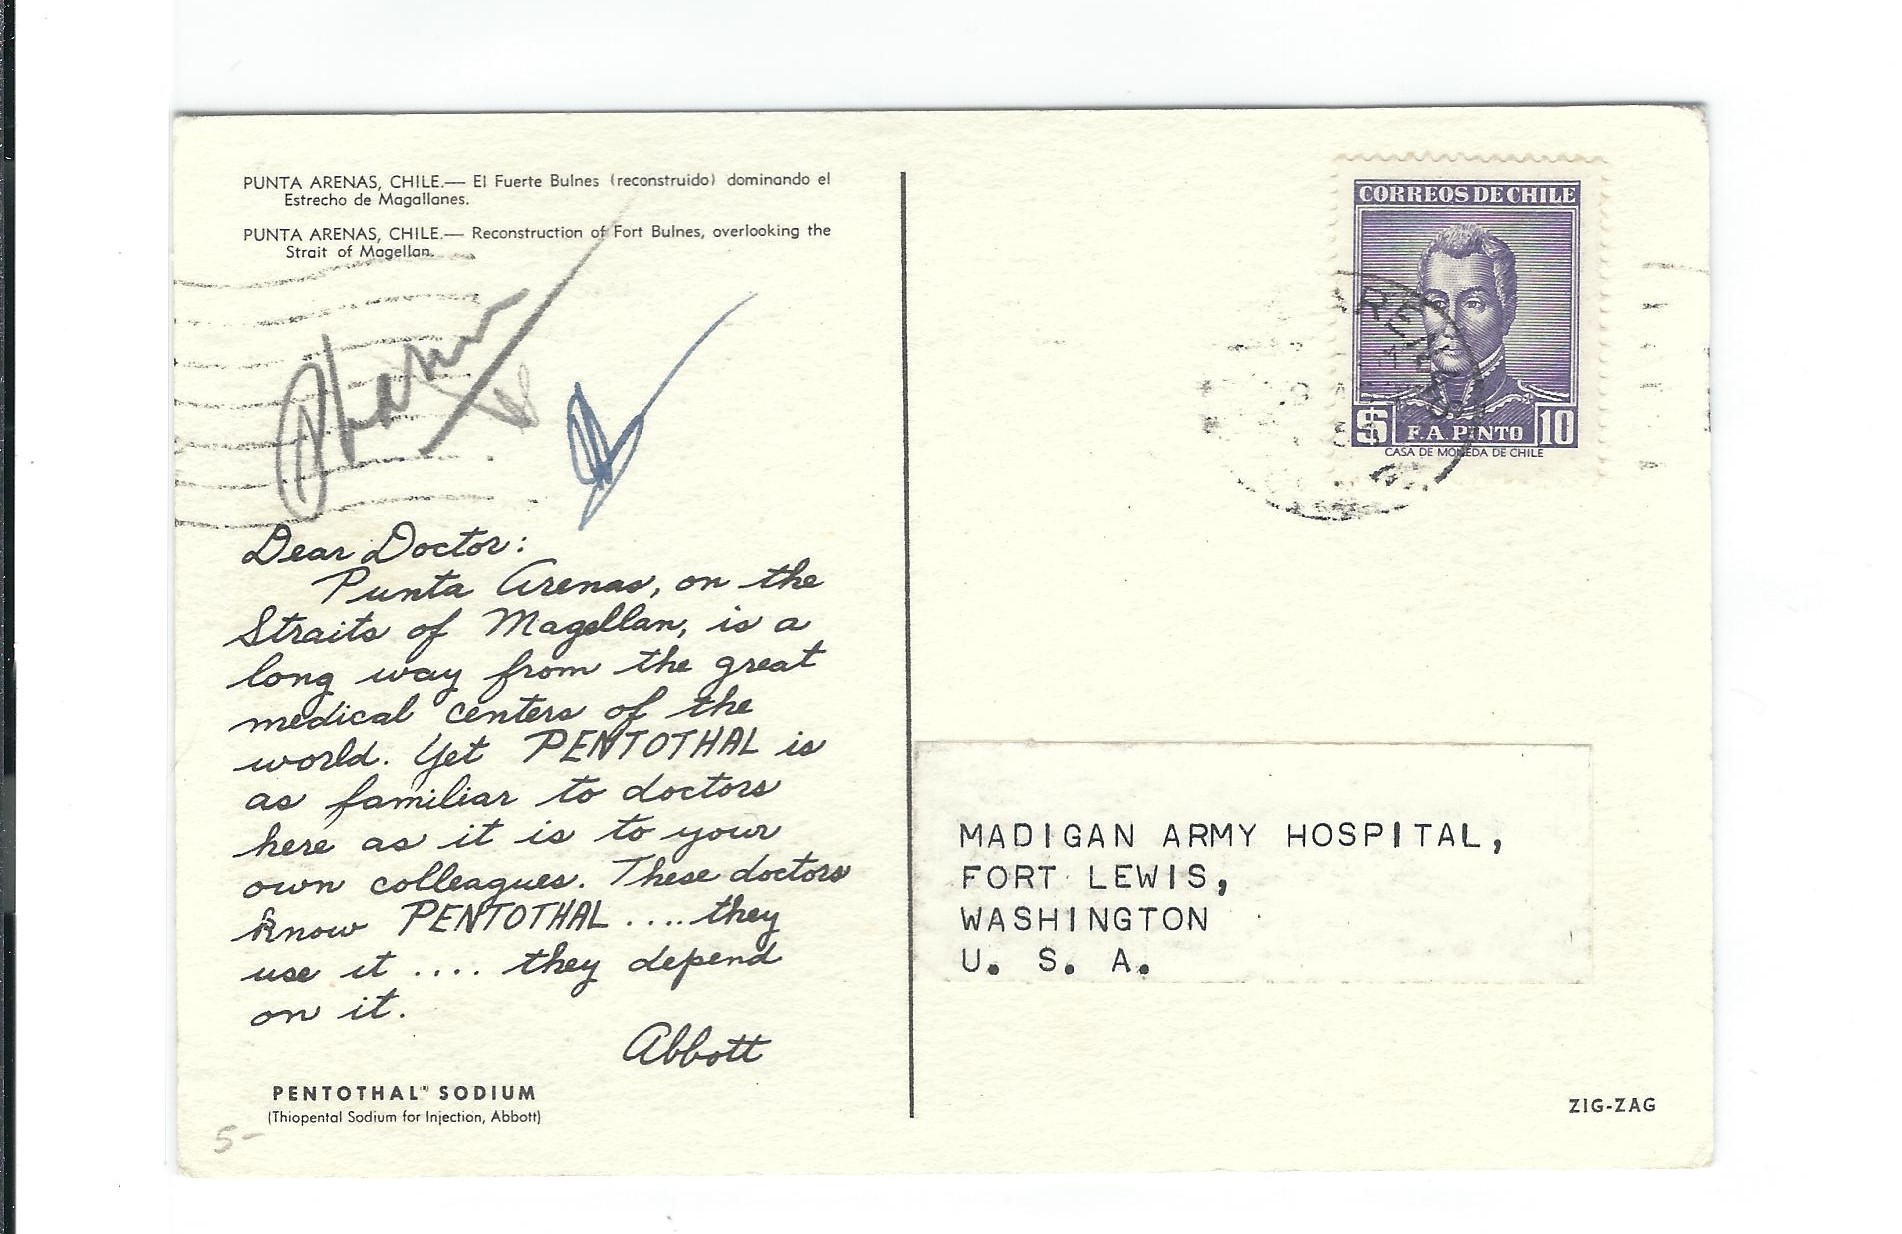 PUNTA ARENAS, CHILE.— El Fuerte Bulnes (reconstruido) dominando el
Estrecho de Magallanes.
PUNTA ARENAS, CHILE.— Reconstruction of Fort Bulnes, overlooking the
Strait of Magellan.
Dear Doctor:
Punta Arenas, on the
Straits of Magellan, is a
long way from the great
medical centers of the
world. Yet PENTOTHAL is
as familiar to doctors
here as it is to your
own colleagues. These doctors
know PENTOTHAL .... they
use it .... they depend
on it.
Abbott
PENTOTHAL® SODIUM
(Thiopental Sodium for Injection, Abbott)
5-
CORREOS DE CHILE
$ F. A. PINTO 10
CASA DE MONEDA DE CHILE
ARENAS
MADIGAN ARMY HOSPITAL,
FORT LEWIS,
WASHINGTON
U. S. A.
ZIG-ZAG